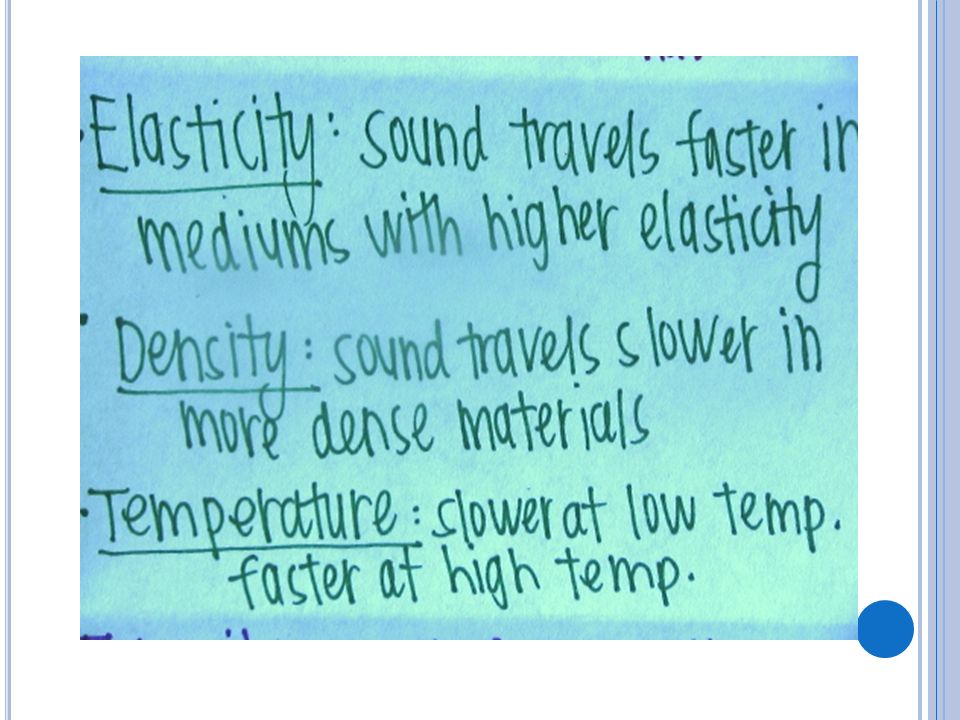 • Elasticity: sound travels faster in
mediums with higher elasticity
• Density: sound travels slower in
more dense materials
• Temperature: slower at low temp.
faster at high temp.